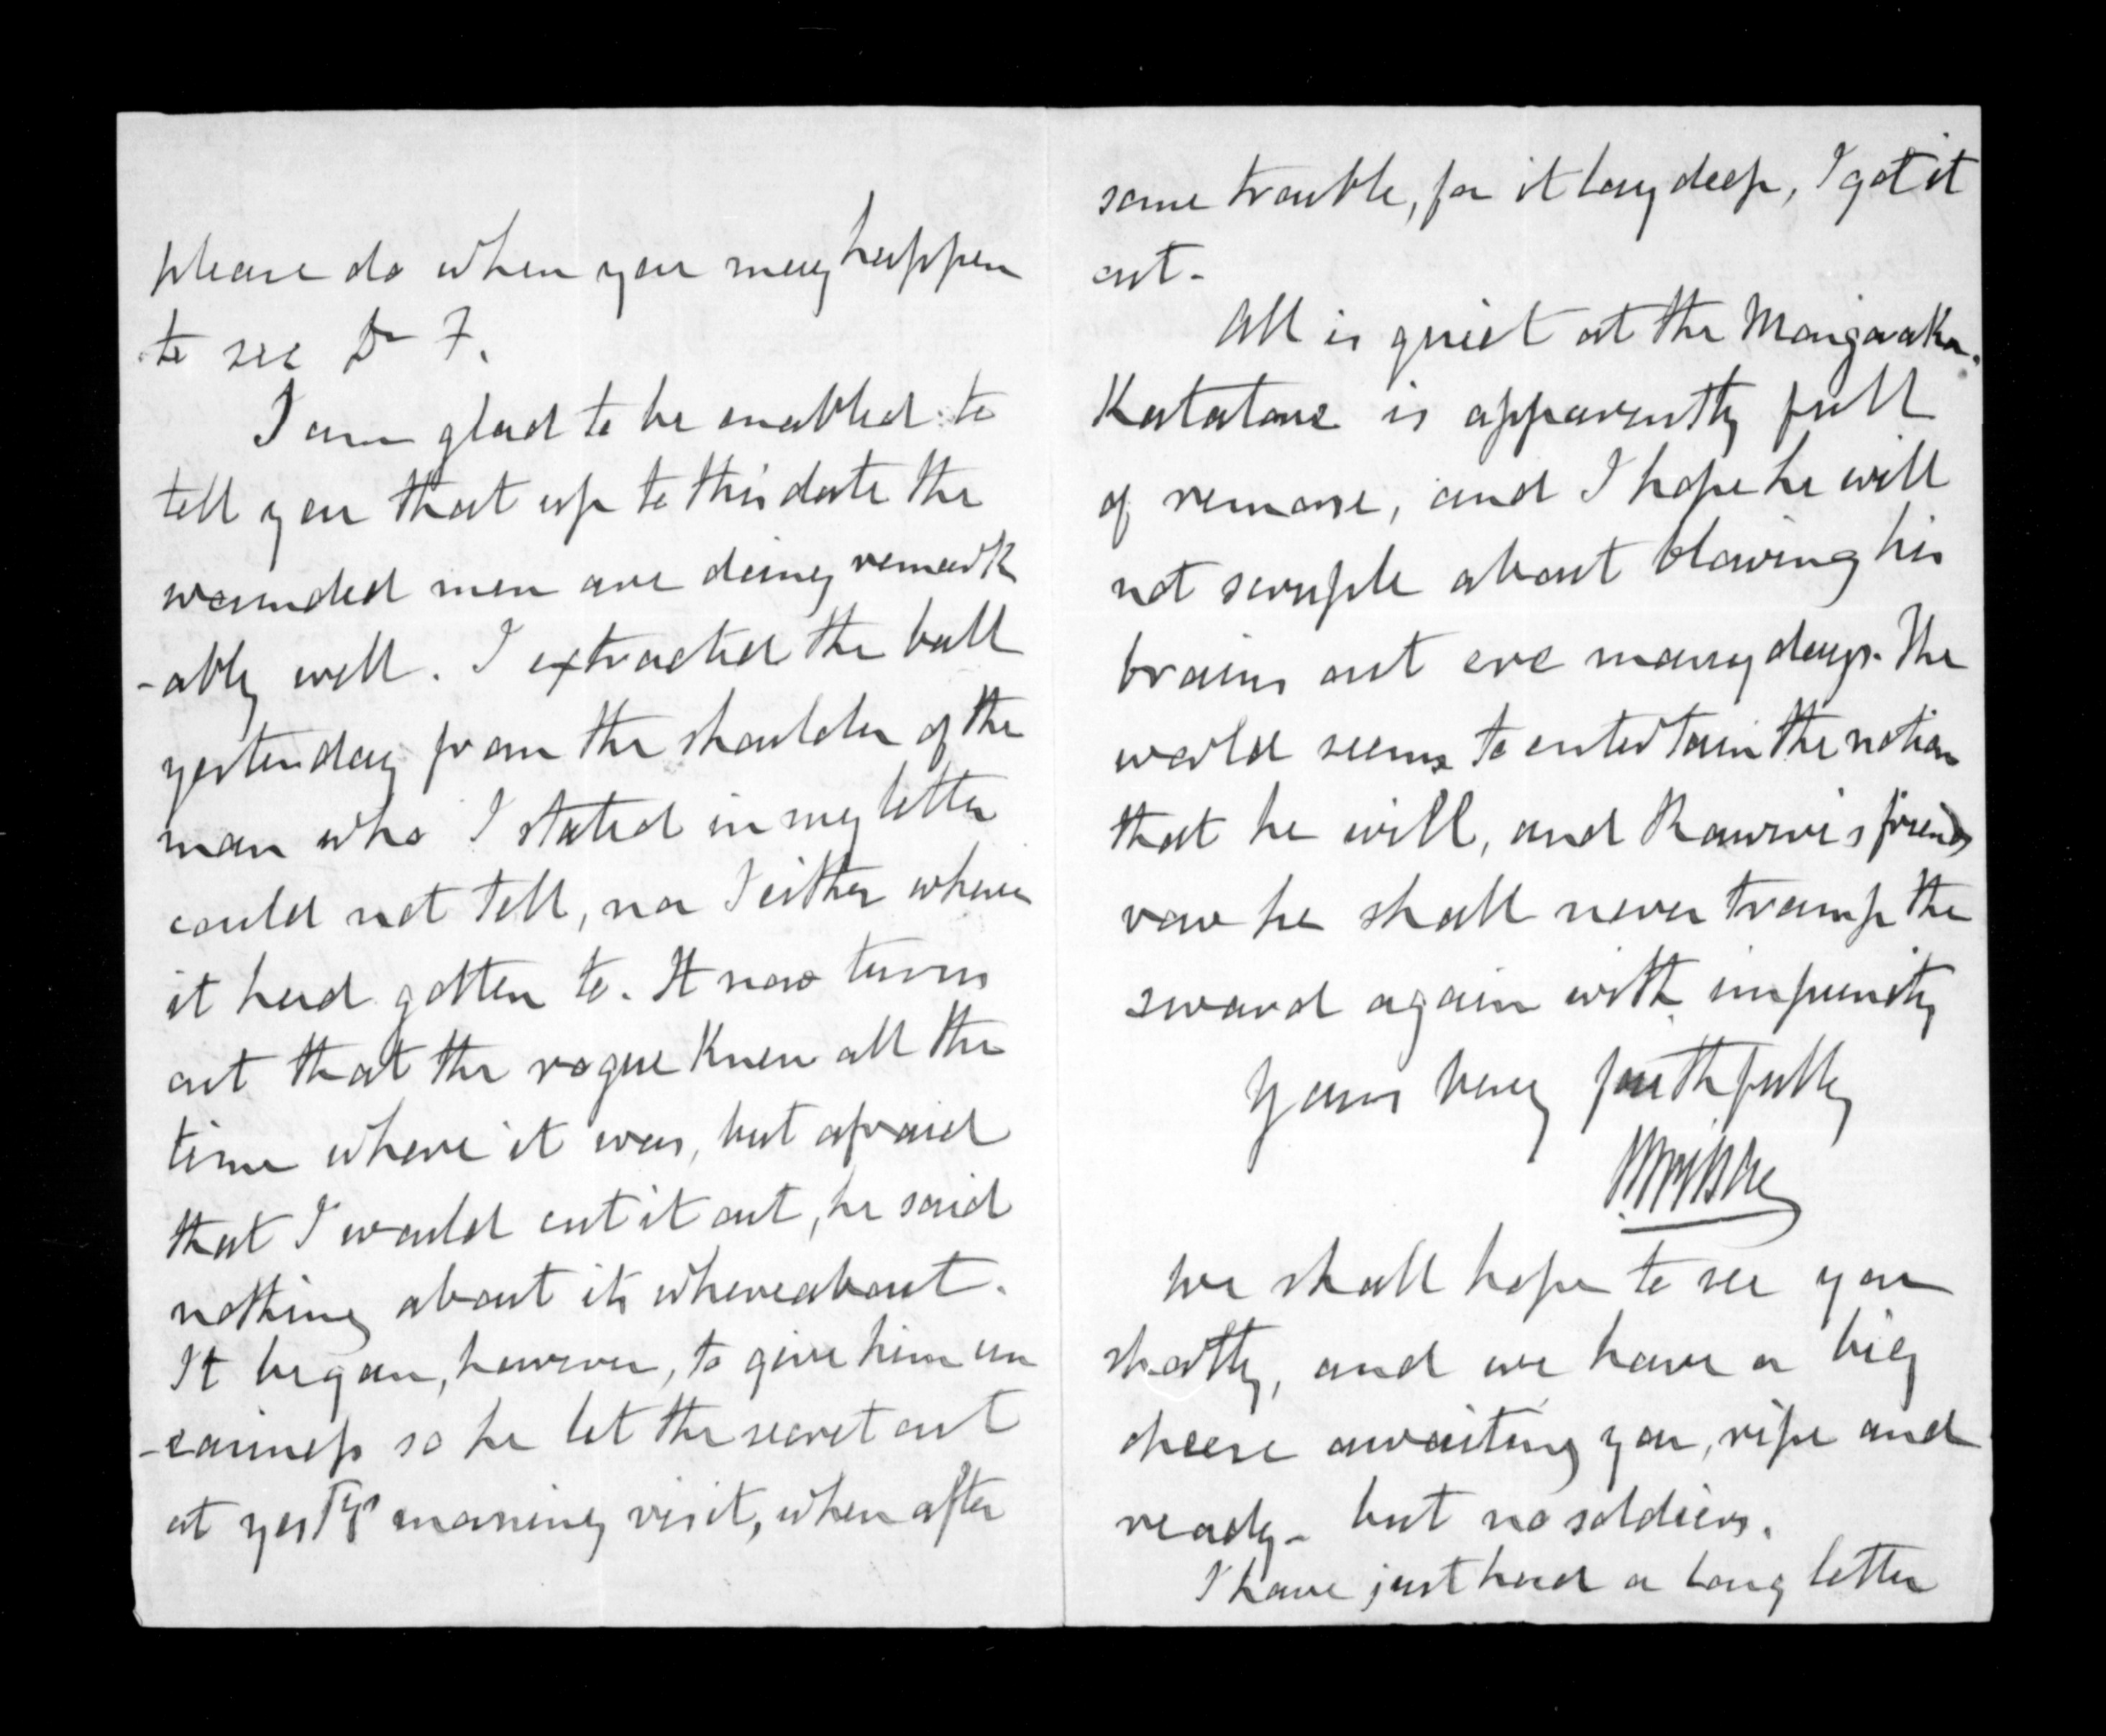 please do when you may happen
to see Dr F.
I am glad to be enabled to
tell you that up to this date the
wounded men are doing remark
-ably well. I extracted the ball
yesterday from the shoulder of the
man who I stated in my letter
could not tell, nor I either where
it had gotten to. It now turns
out that the rogue knew all the
time where it was, but afraid
that I would cut it out, he said
nothing about its whereabout.
It began, however, to give him un
-easiness so he let the secret out
at yesty's morning visit, when after
some trouble, for it lay deep, I got it
out -
All is quiet at the Mangaraka.
Katatore is apparently full
of remorse, and I hope he will
not scruple about blowing his
brains out ere many days. The
world seems to entertain the notion
that he will, and Rawiri's friends
vow he shall never tramp the
sward again with impunity
Yours very faithfully
We shall hope to see you
shortly, and we have a big
cheese awaiting you, ripe and
ready - but no soldiers.
I have just had a long letter